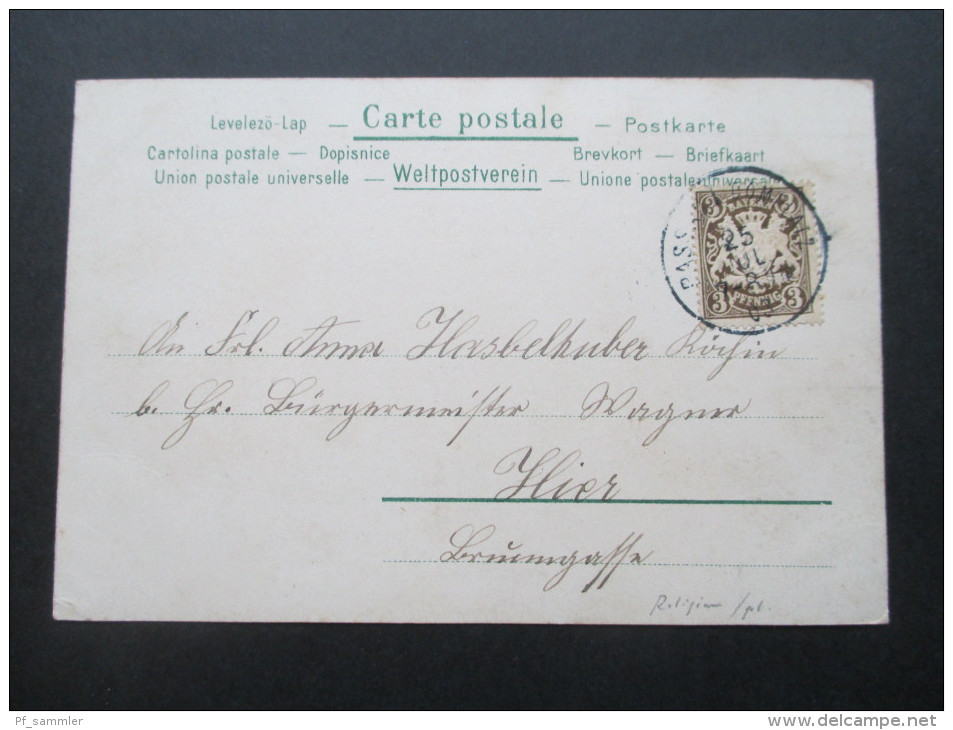 Levelezö-Lap — Carte postale — Postkarte
Cartolina postale — Dopisnice Brevkort — Briefkaart
Union postale universelle — Weltpostverein — Unione postale universale
3
25
3 PFENNIG 3
An Frl. Anna Hasbelhuber Köchin
b. Hr. Bürgermeister Wagner
Hier
Brunngasse
Religion
Pf_sammler
www.delcampe.net